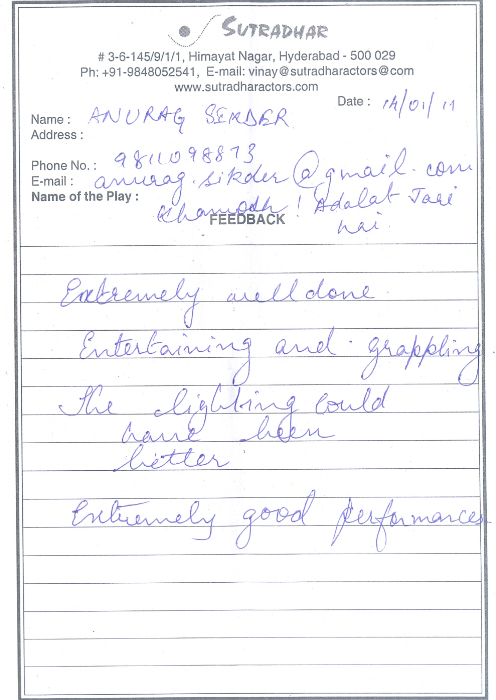 SUTRADHAR
# 3-6-145/9/1/1, Himayat Nagar, Hyderabad - 500 029
Ph: +91-9848052541, E-mail: vinay@sutradharactors@com
www.sutradharactors.com
Date : 14/01/11
Name : ANURAG SEKDER
Address :
Phone No. : 9811098873
E-mail : anurag.sikder@gmail.com
Name of the Play : Khamosh! Adalat Jari
hai
FEEDBACK
Extremely well done
Entertaining and grappling
The lighting could
have been
better
Extremely good performances